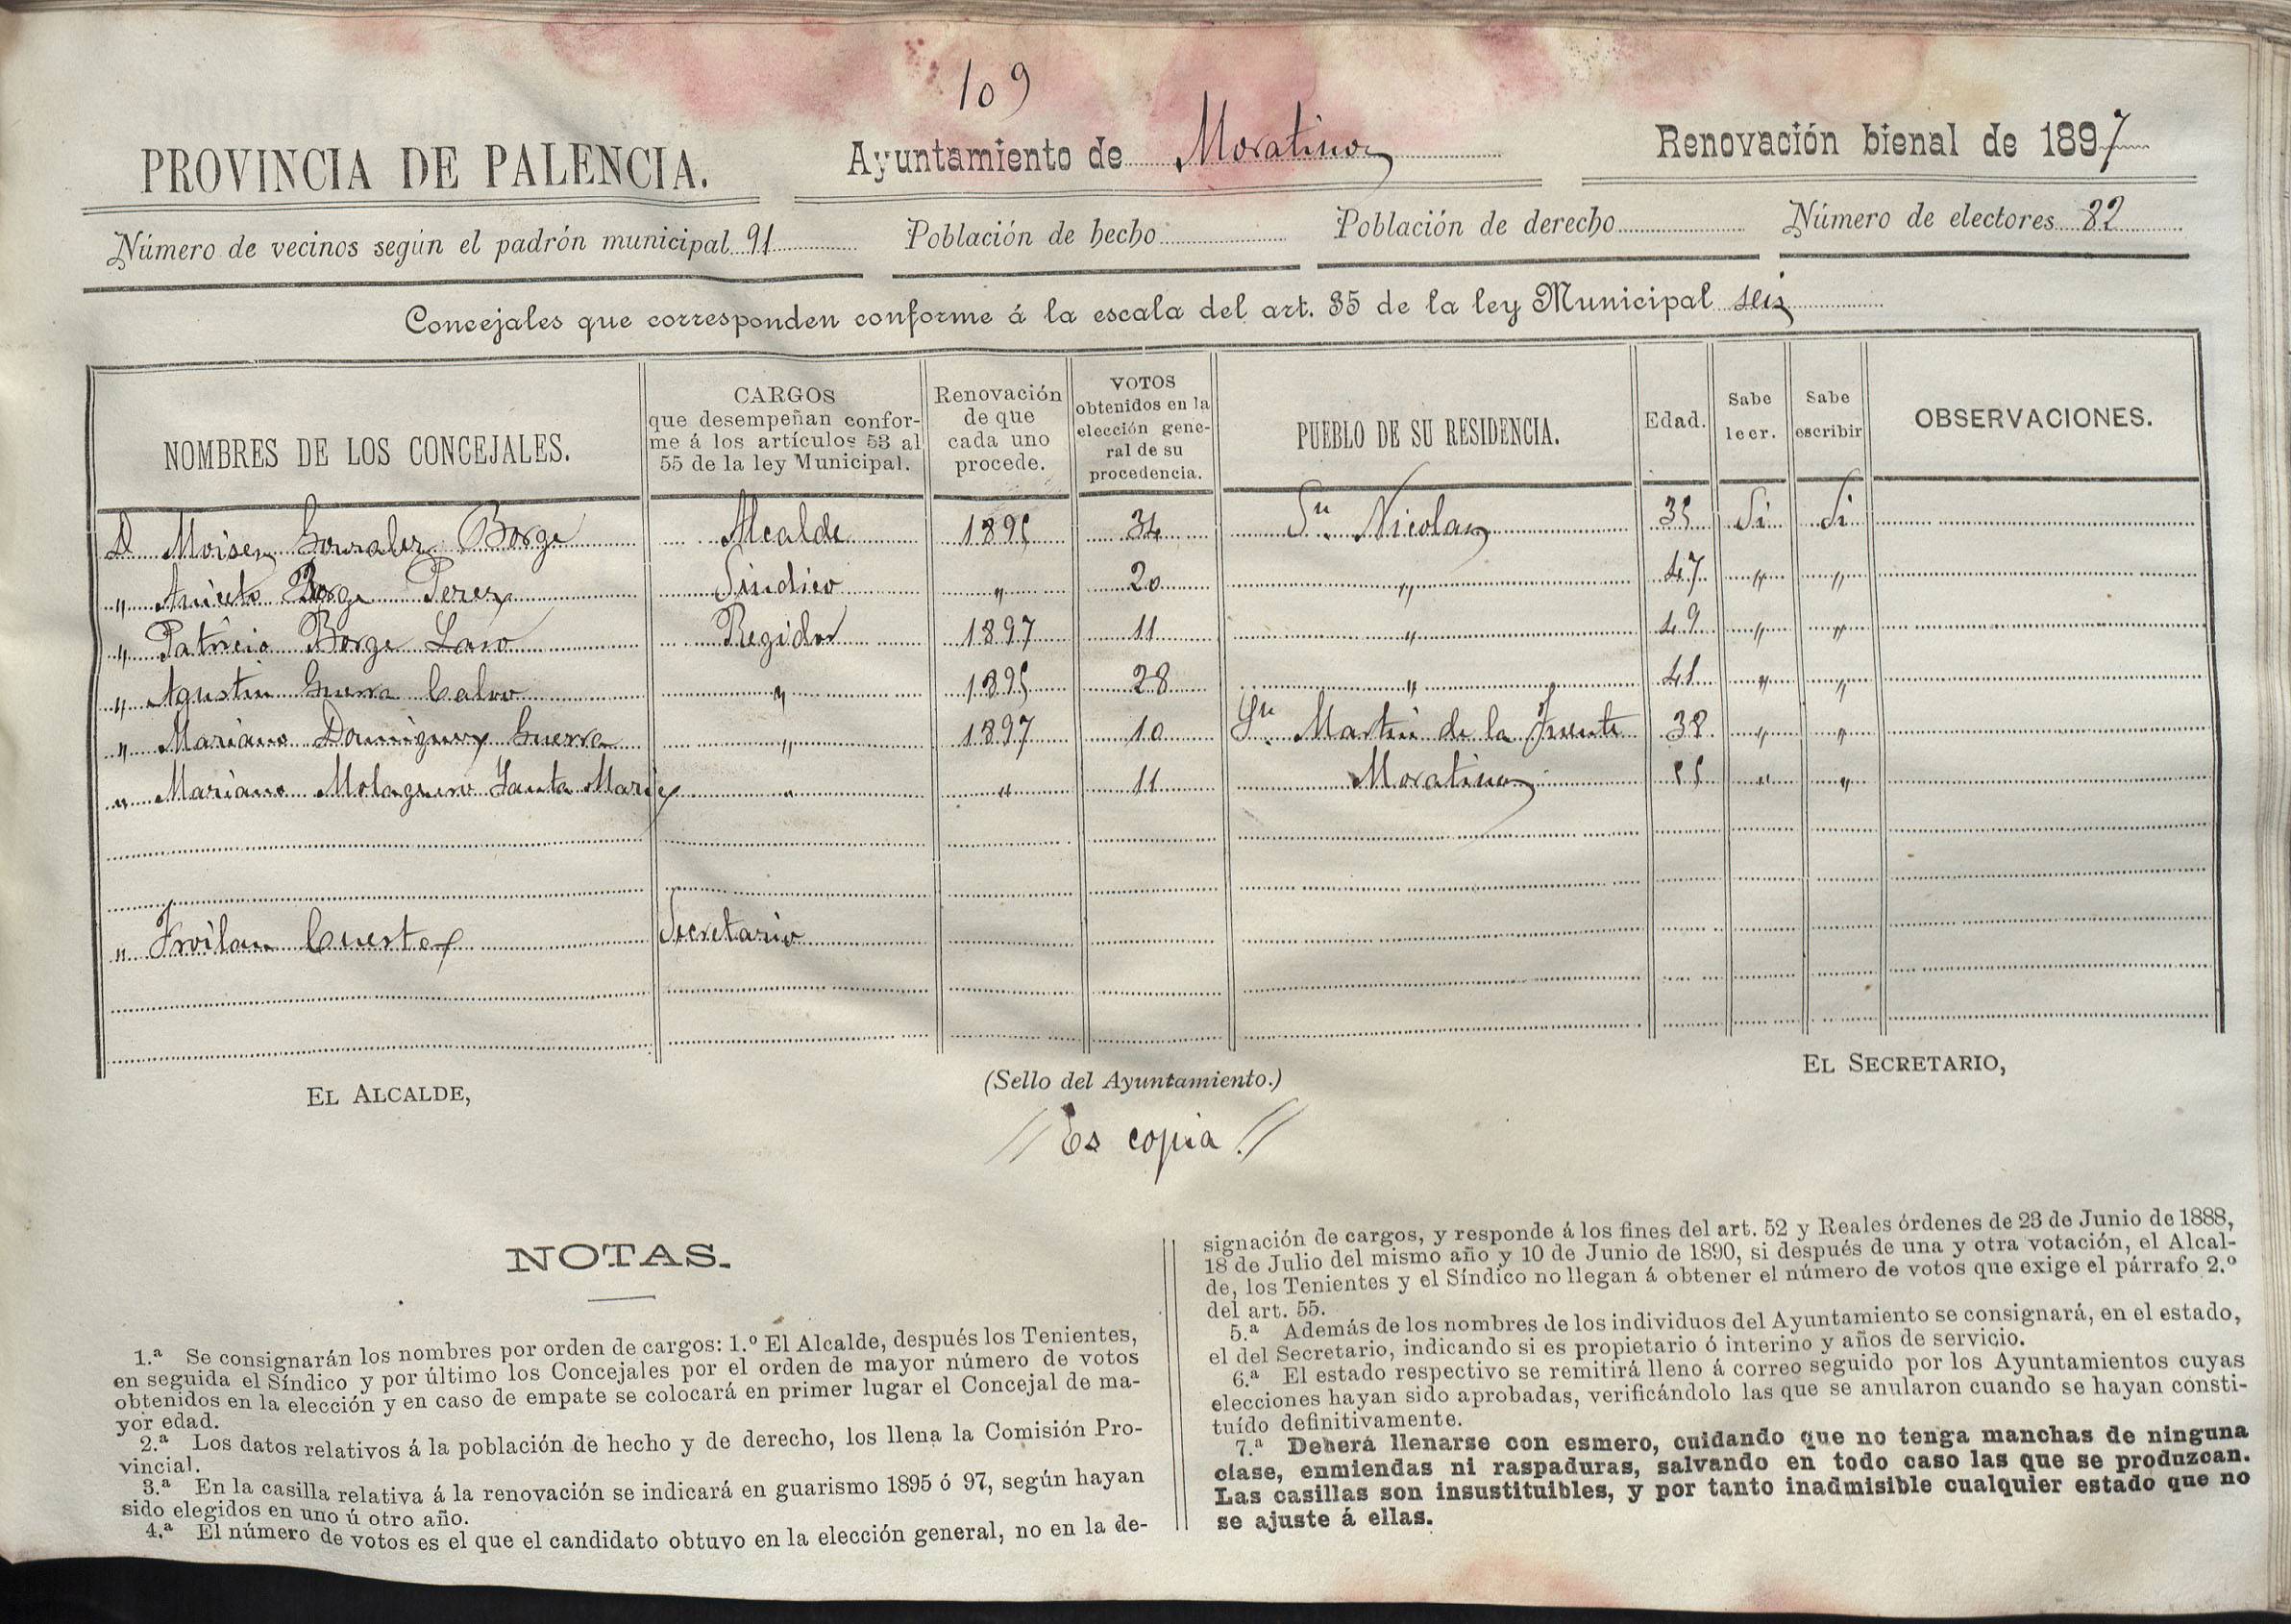 109
PROVINCIA DE PALENCIA. Ayuntamiento de Moratinos Renovación bienal de 1897
Número de vecinos según el padrón municipal 91 Población de hecho Población de derecho Número de electores 82
Concejales que corresponden conforme á la escala del art. 35 de la ley Municipal seis
NOMBRES DE LOS CONCEJALES.
CARGOS
que desempeñan confor-
me á los artículos 53 al
55 de la ley Municipal.
Renovación
de que
cada uno
procede.
VOTOS
obtenidos en la
elección gene-
ral de su
procedencia.
PUEBLO DE SU RESIDENCIA.
Edad.
Sabe
leer.
Sabe
escribir
OBSERVACIONES.
D Moises Gonzalez Borge Alcalde 1895 34 Sn. Nicolas 35 Si Si
" Aniceto Borge Perez Sindico " 20 " 47 " "
" Patricio Borge Laso Regidor 1897 11 " 49 " "
" Agustin Guerra Calvo " 1895 28 " 41 " "
" Mariano Dominguez Guerra " 1897 10 Sn. Martin de la Fuente 38 " "
" Mariano Santa Maria " " 11 Moratinos 55 " "
" Froilan Cuesta Secretario
EL ALCALDE, (Sello del Ayuntamiento.) EL SECRETARIO,
// Es copia //
NOTAS.
1.ª Se consignarán los nombres por orden de cargos: 1.º El Alcalde, después los Tenientes,
en seguida el Síndico y por último los Concejales por el orden de mayor número de votos
obtenidos en la elección y en caso de empate se colocará en primer lugar el Concejal de ma-
yor edad.
2.ª Los datos relativos á la población de hecho y de derecho, los llena la Comisión Pro-
vincial.
3.ª En la casilla relativa á la renovación se indicará en guarismo 1895 ó 97, según hayan
sido elegidos en uno ú otro año.
4.ª El número de votos es el que el candidato obtuvo en la elección general, no en la de-
signación de cargos, y responde á los fines del art. 52 y Reales órdenes de 23 de Junio de 1888,
18 de Julio del mismo año y 10 de Junio de 1890, si después de una y otra votación, el Alcal-
de, los Tenientes y el Síndico no llegan á obtener el número de votos que exige el párrafo 2.º
del art. 55.
5.ª Además de los nombres de los individuos del Ayuntamiento se consignará, en el estado,
el del Secretario, indicando si es propietario ó interino y años de servicio.
6.ª El estado respectivo se remitirá lleno á correo seguido por los Ayuntamientos cuyas
elecciones hayan sido aprobadas, verificándolo las que se anularon cuando se hayan consti-
tuído definitivamente.
7.ª Deberá llenarse con esmero, cuidando que no tenga manchas de ninguna
clase, enmiendas ni raspaduras, salvando en todo caso las que se produzcan.
Las casillas son insustituibles, y por tanto inadmisible cualquier estado que no
se ajuste á ellas.